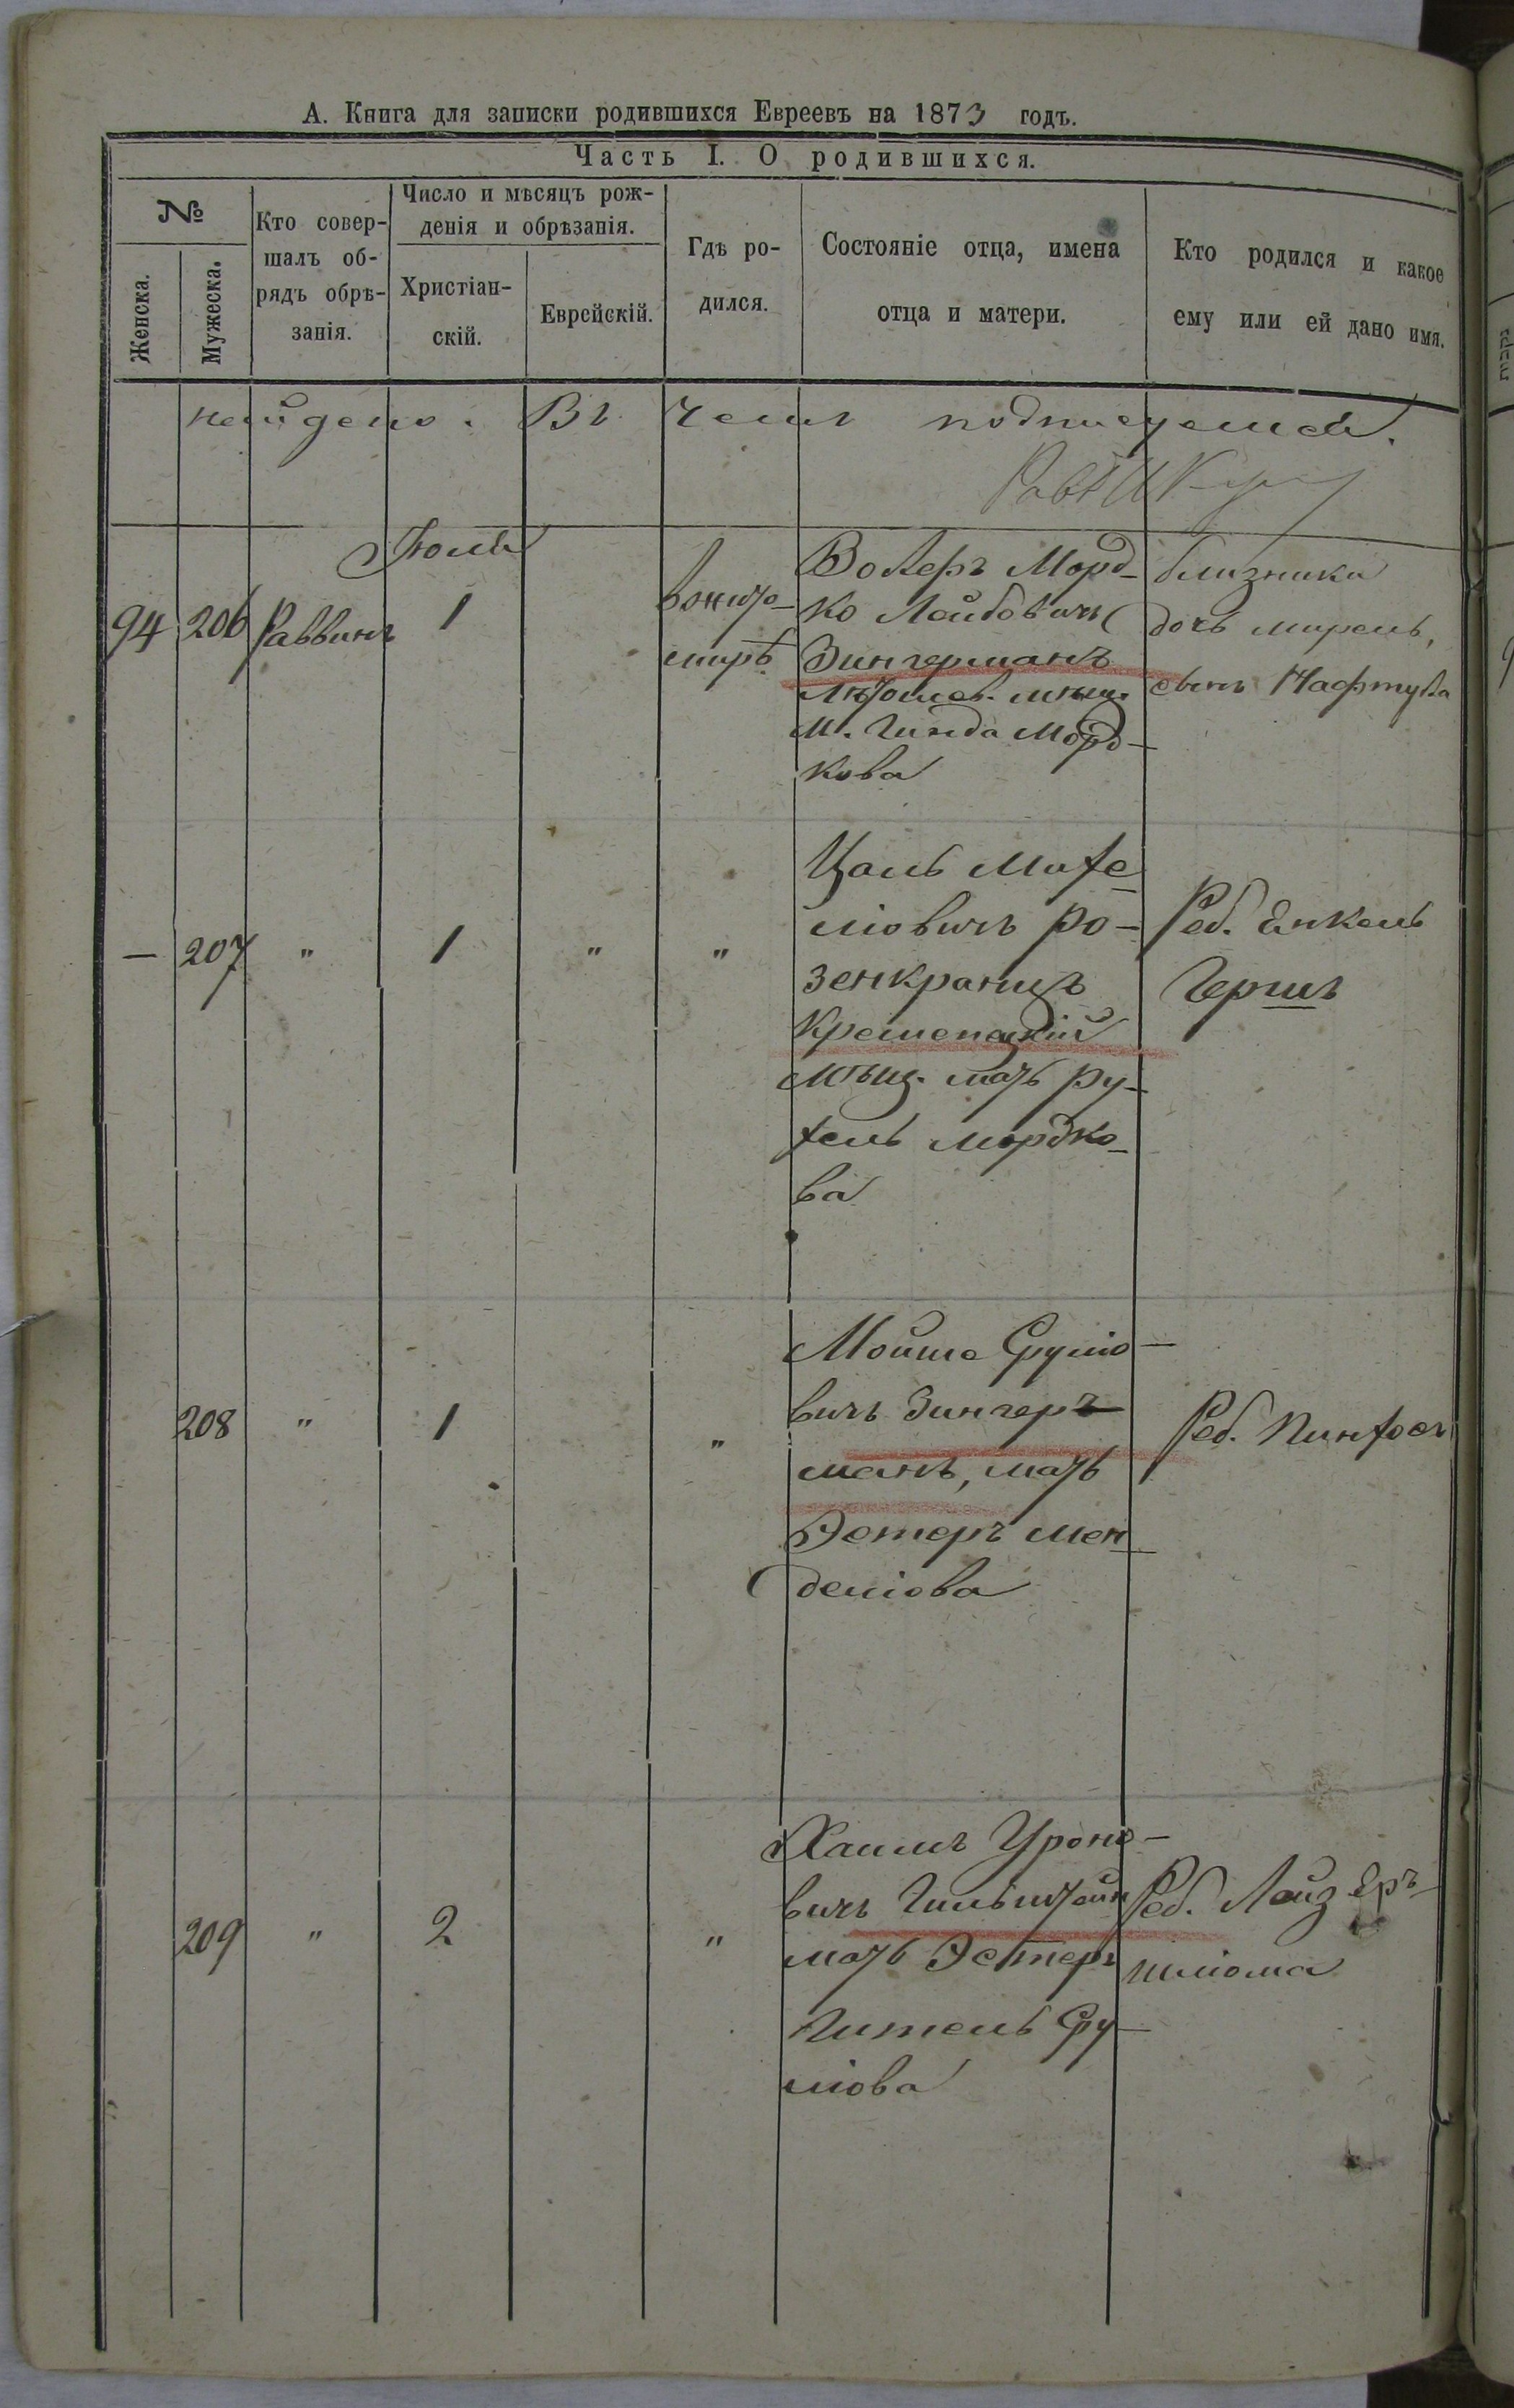 А. Книга для записки родившихся Евреевъ на 1873 годъ.
Часть I. О родившихся.
№
Женска.
Мужеска.
Кто совер-
шалъ об-
рядъ обрѣ-
занія.
Число и мѣсяцъ рож-
денія и обрѣзанія.
Христіан-
скій.
Еврейскій.
Гдѣ ро-
дился.
Состояніе отца, имена
отца и матери.
Кто родился и какое
ему или ей дано имя.
найдено. Въ чемъ подписуемся.
Іюль
94 206 Раввинъ 1
в Жито-
мирѣ.
Волеръ Морд-
ко Лейбовичъ
Зингерманъ
мѣщ.
м. Гинда Морд-
кова
близники
дочь Мирель,
сынъ Нафтула
— 207 " 1 " "
Цаль Михе-
ліовичъ Ро-
зенкранцъ
Кременецкій
мѣщ. мать Ру-
хель Мордко-
ва
Реб. Енкель
Гершъ
208 " 1 "
Мойше Сруліо-
вичъ Зингеръ
манъ, мать
Эстеръ Мен-
деліова
Реб. Пинхосъ
209 " 2 "
Хаимъ Уроно-
вичъ Гильштейн
мать Эстеръ
Гитель Сру-
ліова
Реб. Лейзеръ-
Шліома